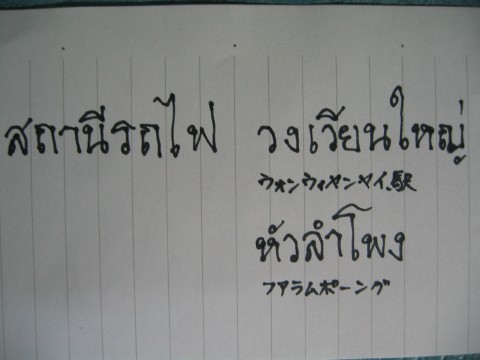 สถานีรถไฟ วงเวียนใหญ่
ウォンウィヤンヤイ駅
หัวลำโพง
フアラムポーング